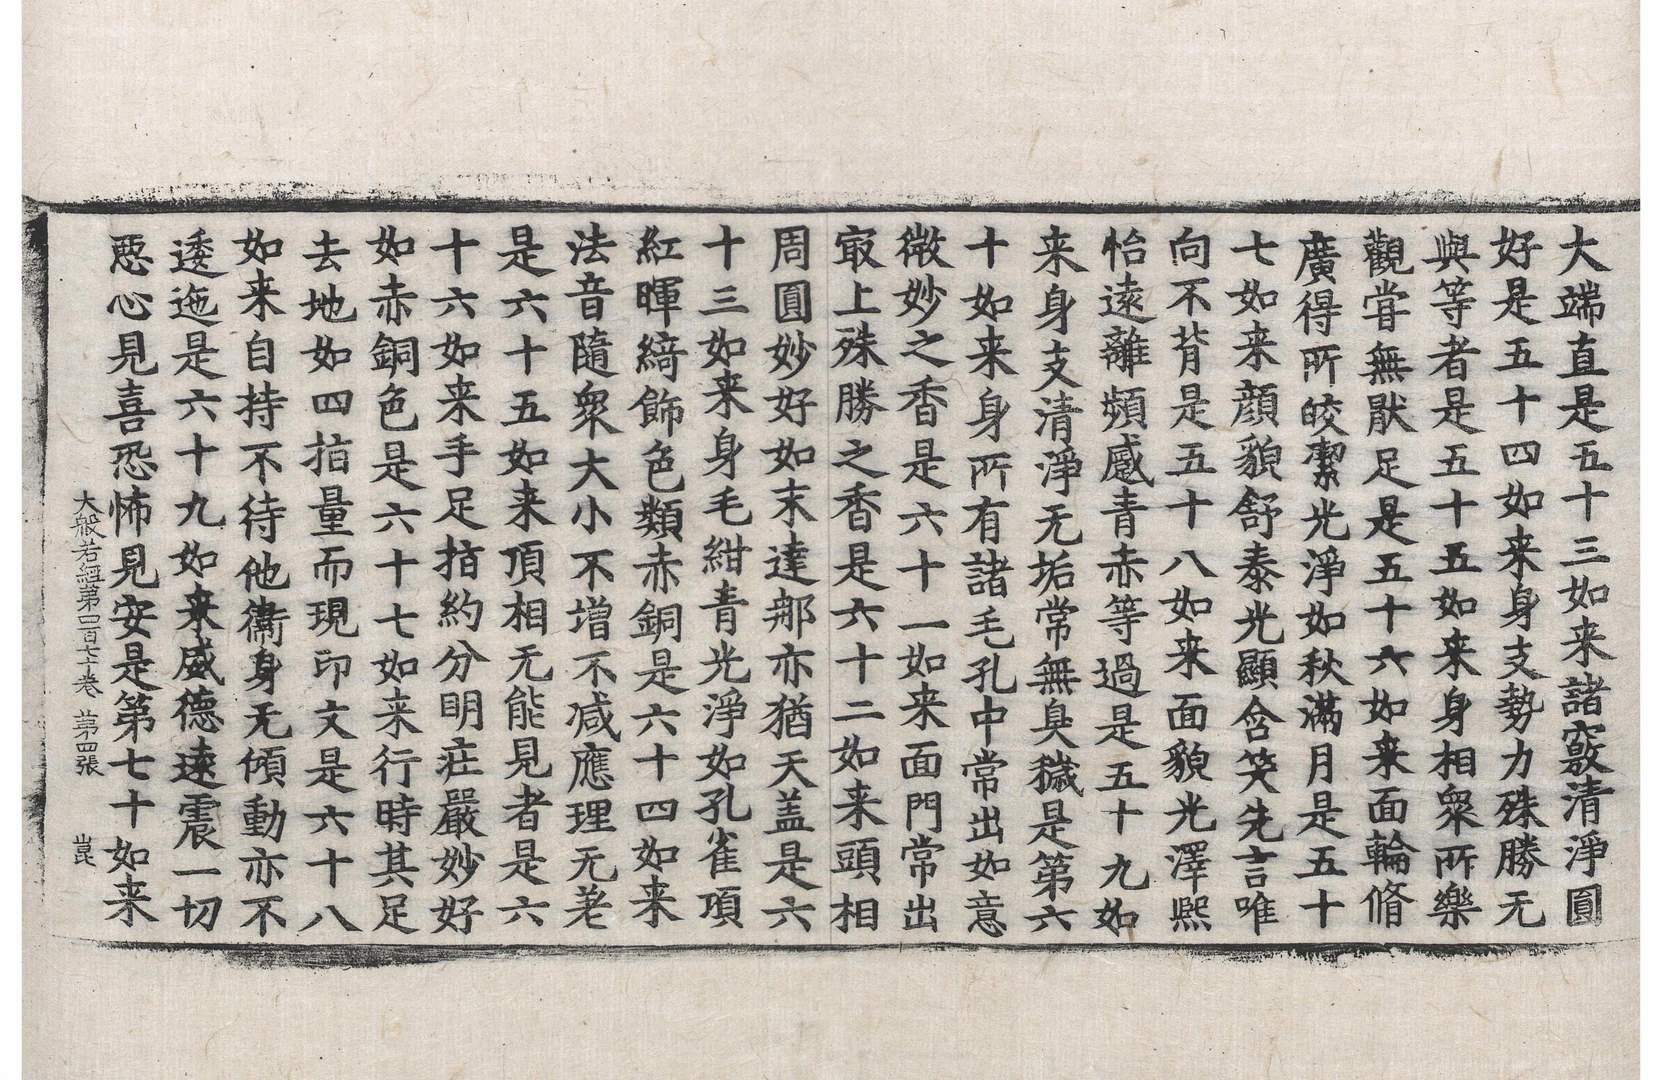 大端直是五十三如来諸竅清淨圓
好是五十四如来身支勢力殊勝无
與等者是五十五如来身相衆所樂
觀甞無猒足是五十六如来面輪脩
廣得所皎潔光淨如秋滿月是五十
七如来顔貌舒泰光顯含笑先言唯
向不背是五十八如来面貌光澤熙
怡遠離顰蹙青赤等過是五十九如
来身支清淨无垢常無臭穢是第六
十如来身所有諸毛孔中常出如意
微妙之香是六十一如来面門常出
㝡上殊勝之香是六十二如来頭相
周圓妙好如末達那亦猶天盖是六
十三如来身毛紺青光淨如孔雀項
紅暉綺飾色類赤銅是六十四如来
法音隨衆大小不增不减應理无差
是六十五如来頂相无能見者是六
十六如来手足指約分明莊嚴妙好
如赤銅色是六十七如来行時其足
去地如四指量而現印文是六十八
如来自持不待他衞身无傾動亦不
逶迤是六十九如来威德遠震一切
惡心見喜恐怖見安是第七十如来
大般若經第四百七十卷 第四張 崑